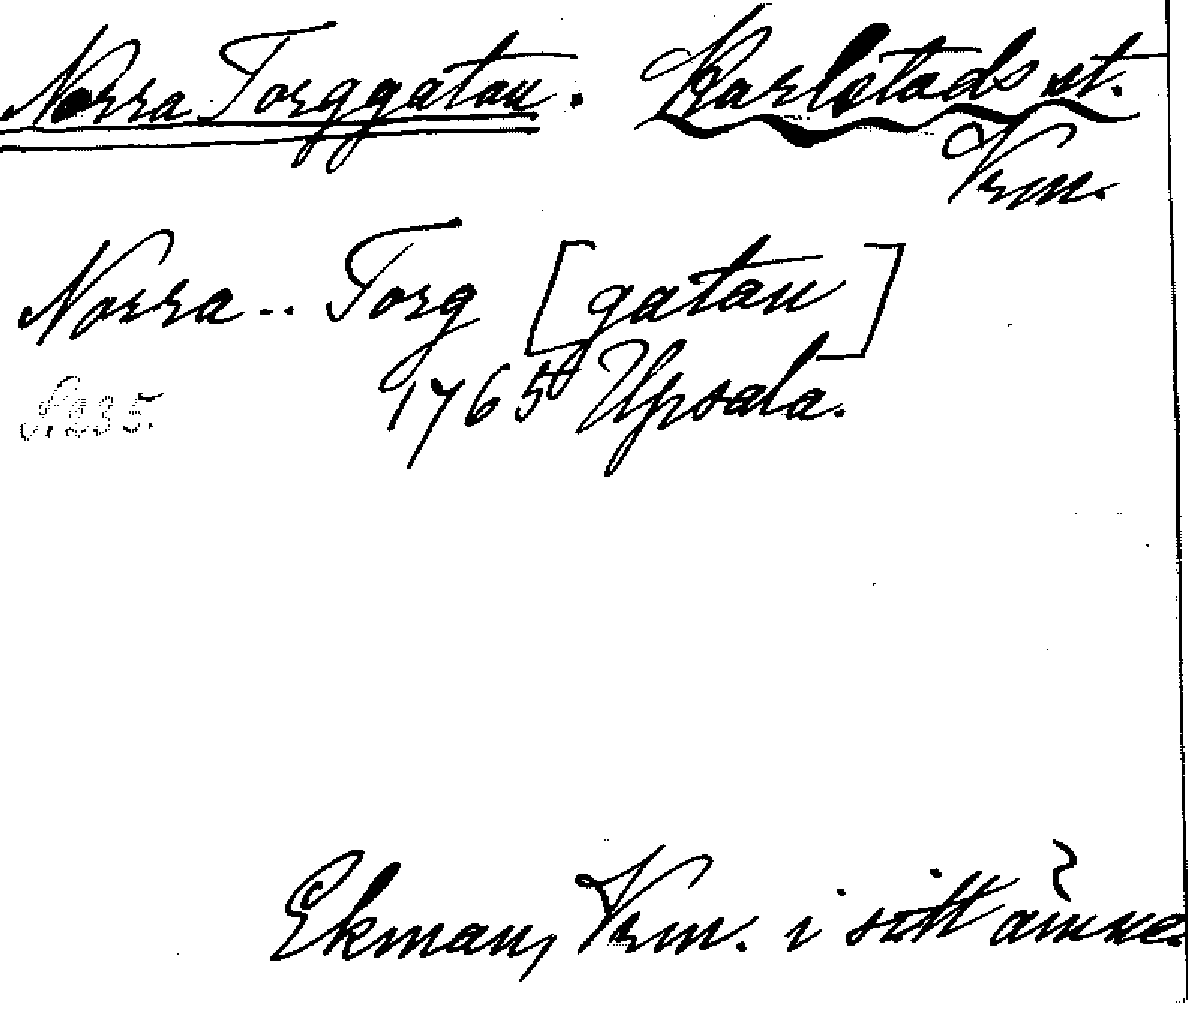 Norra Torggatan. Karlstads st.
Vrm.
Norra.. Torg [gatan]
S. 235. 1765 Upsala.
Ekman, Vrm. i sitt ämne.